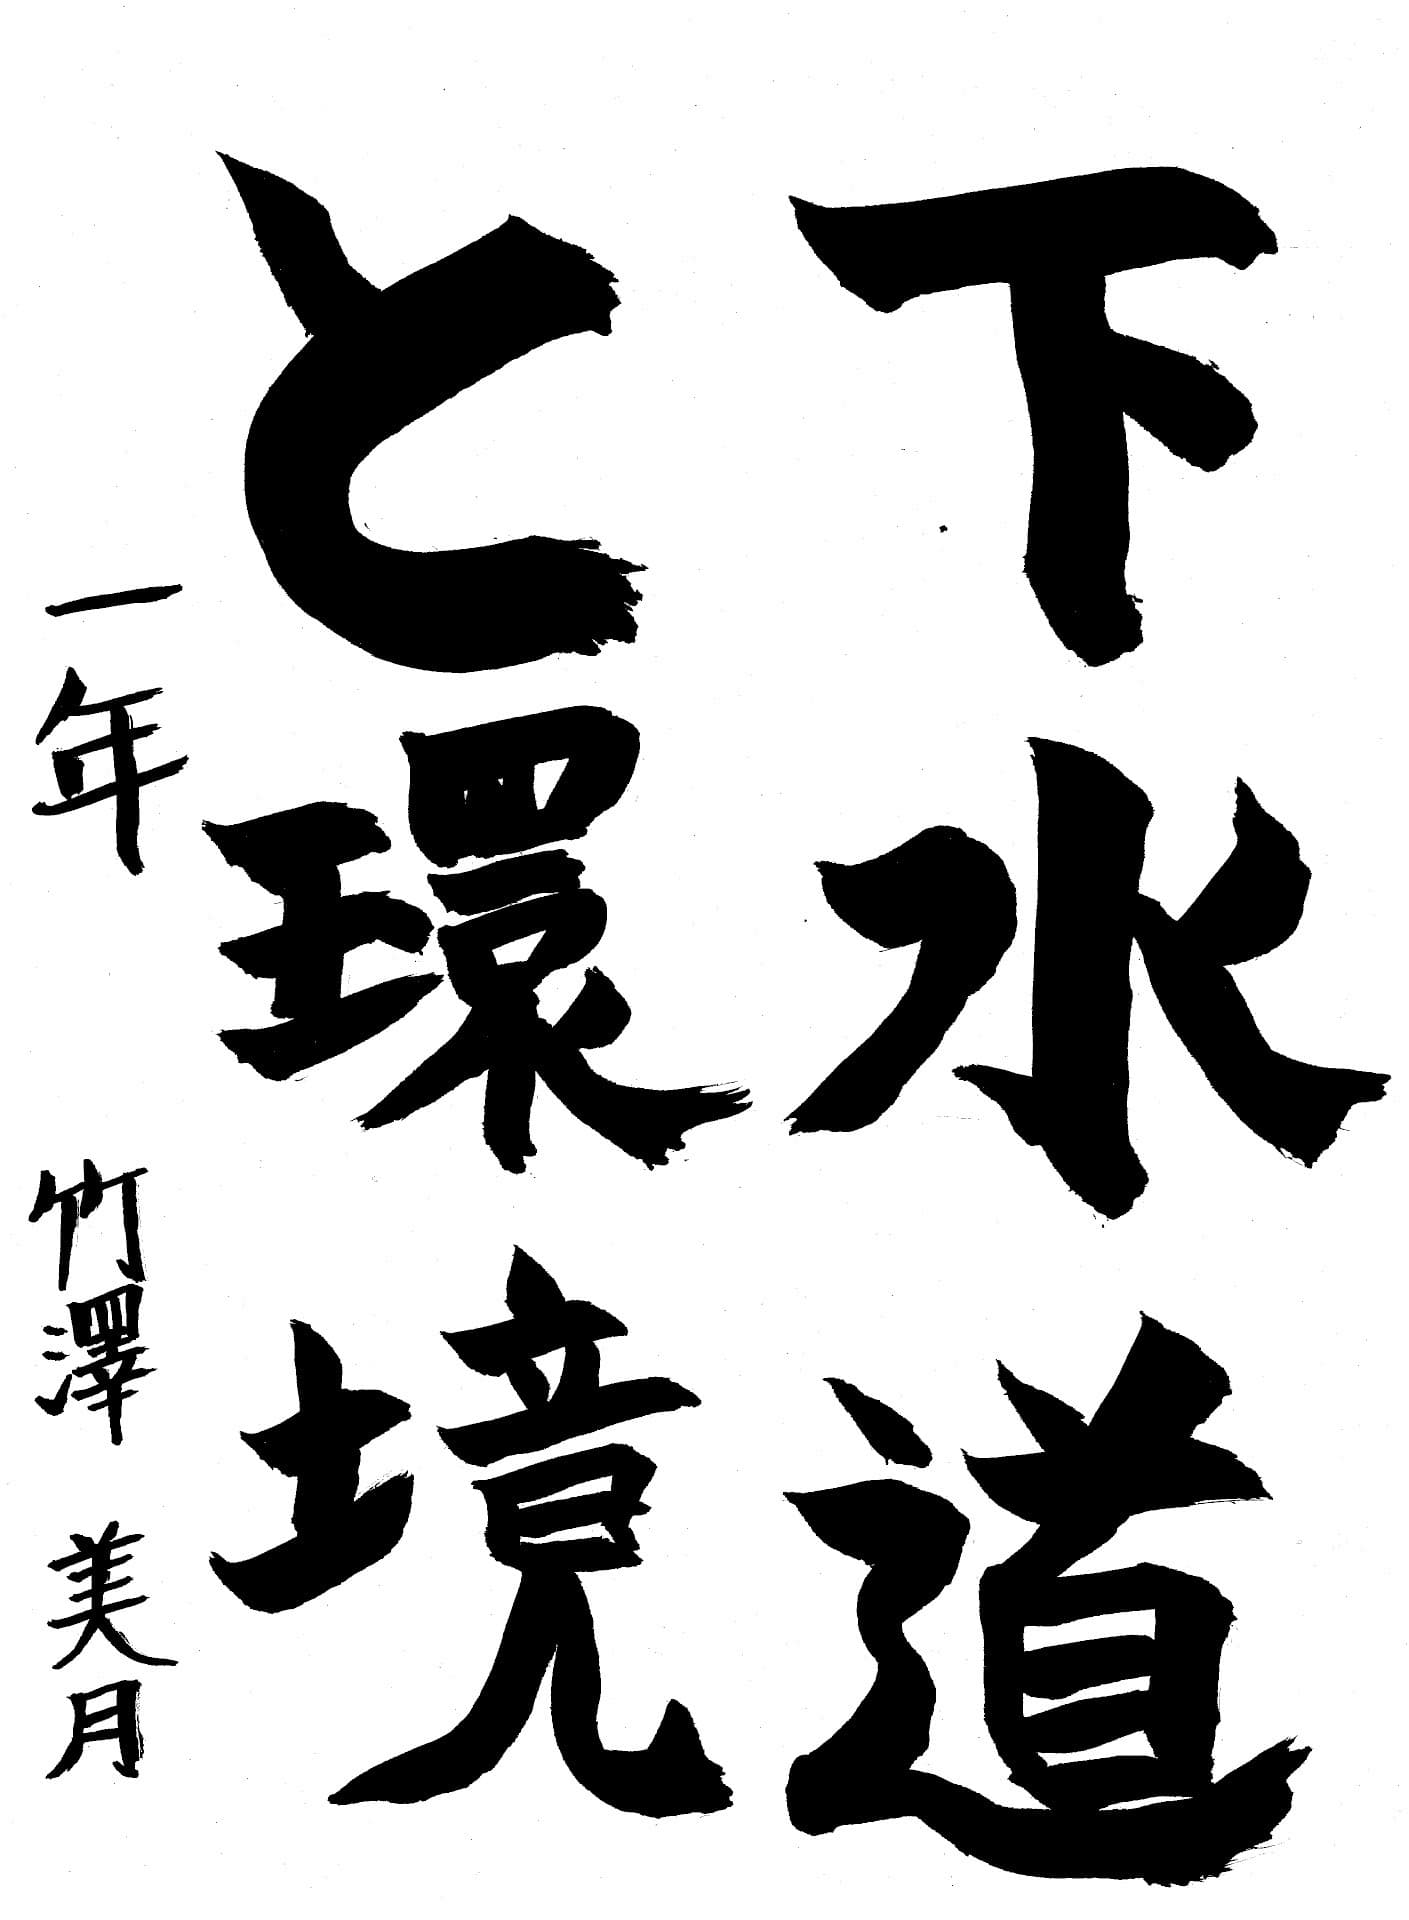 下水道
と環境
一年 竹澤 美月